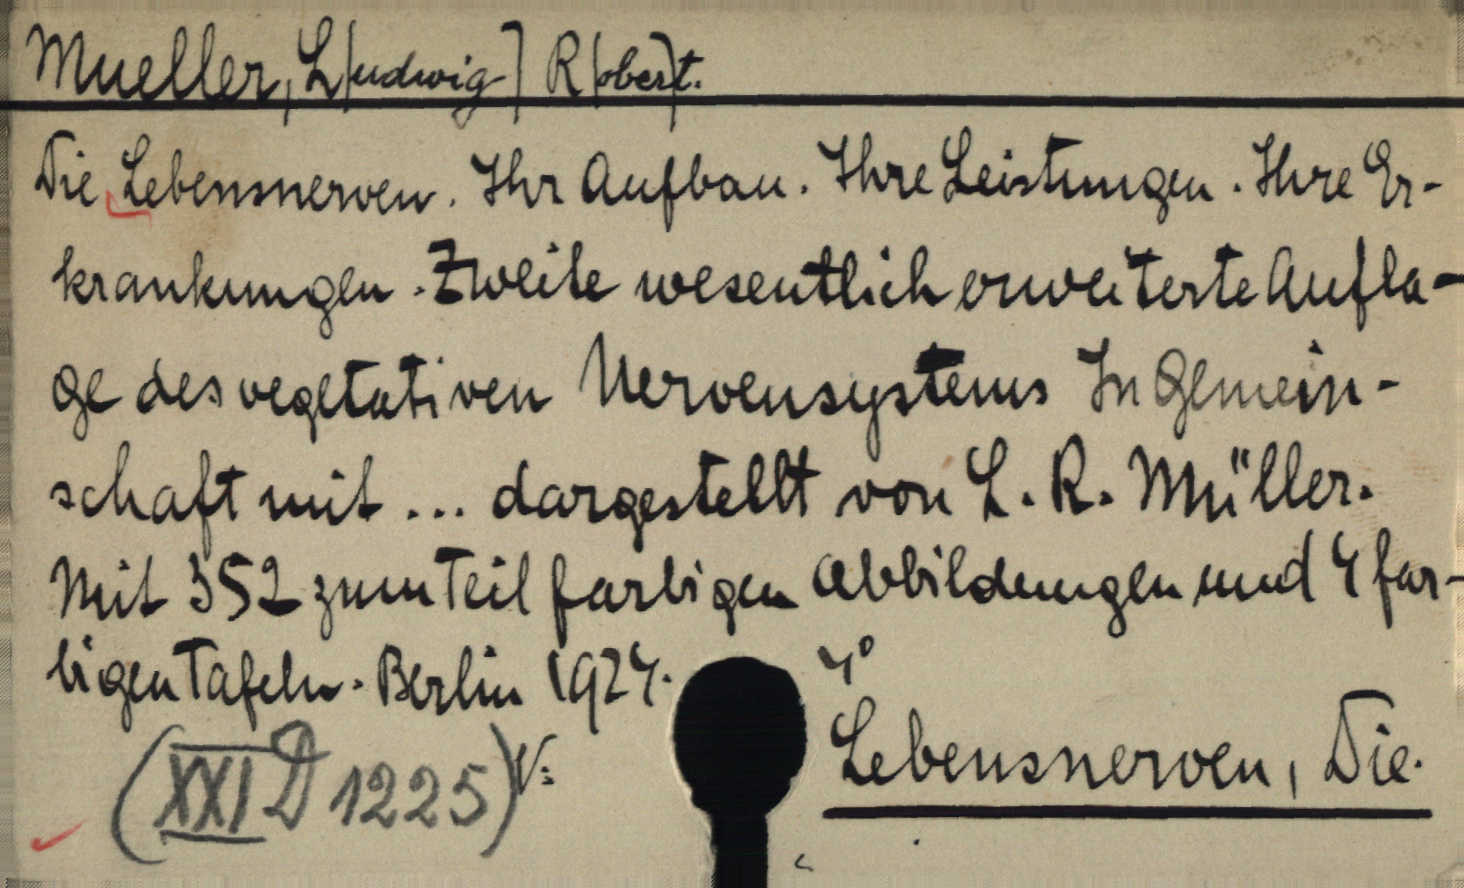 Mueller, L[udwig] R[ober]t.
Die Lebensnerven. Ihr Aufbau. Ihre Leistungen. Ihre Er-
krankungen. Zweite wesentlich erweiterte Aufla-
ge des vegetativen Nervensystems In Gemein-
schaft mit ... dargestellt von L. R. Müller.
Mit 352 zum Teil farbigen Abbildungen und 4 far-
bigen Tafeln. Berlin 1924. 4°
(XXI D 1225) V:
Lebensnerven, Die.